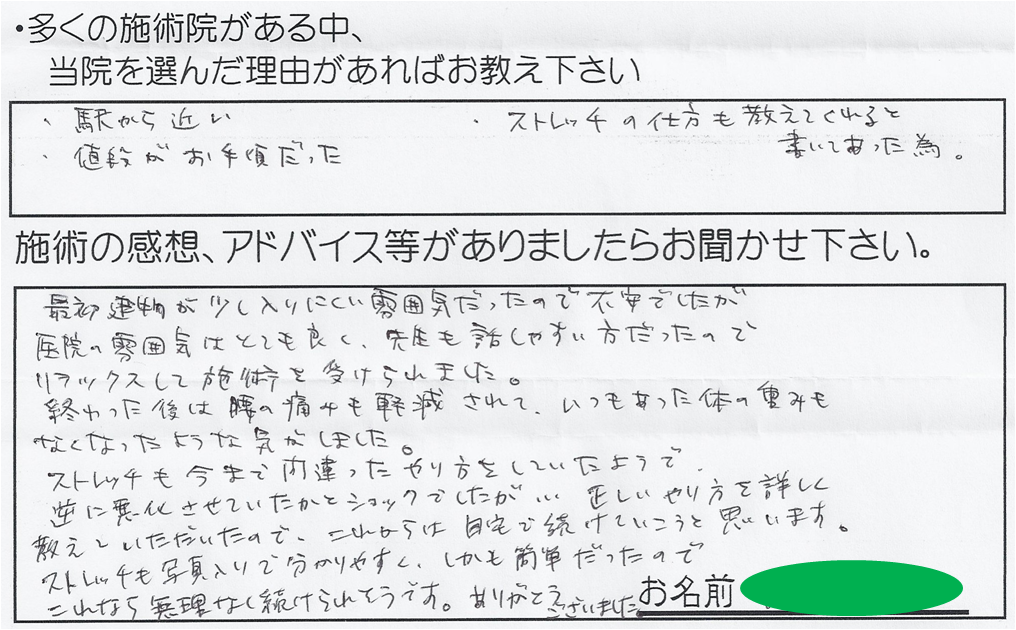 ・多くの施術院がある中、
当院を選んだ理由があればお教え下さい
・ 駅から近い
・ ストレッチの仕方も教えてくれると
・ 値段がお手頃だった
書いてあった為。
施術の感想、アドバイス等がありましたらお聞かせ下さい。
最初建物が少し入りにくい雰囲気だったので不安でしたが
医院の雰囲気はとても良く、先生も話しやすい方だったので
リラックスして施術を受けられました。
終わった後は腰の痛みも軽減されて、いつもあった体の重みも
なくなったような気がしました。
ストレッチも今まで間違ったやり方をしていたようで、
逆に悪化させていたかとショックでしたが… 正しいやり方を詳しく
教えていただいたので、これからは自宅で続けていこうと思います。
ストレッチも写真入りで分かりやすく、しかも簡単だったので
これなら無理なく続けられそうです。ありがとう
ございました。
お名前